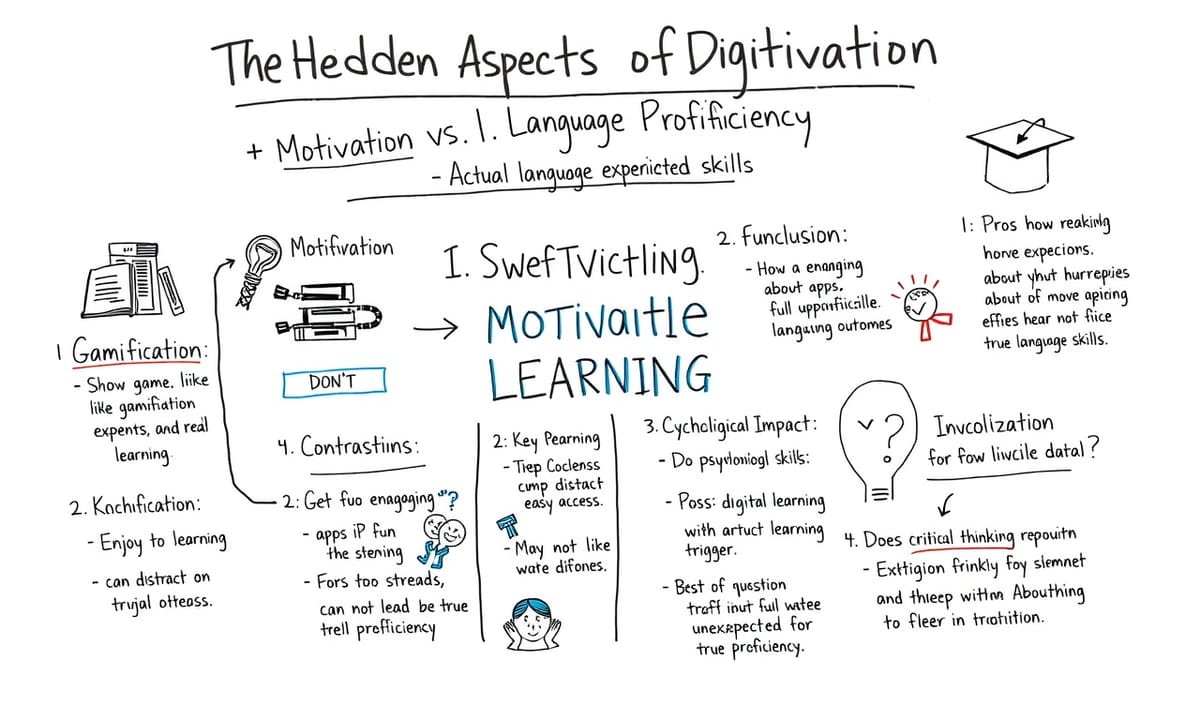 The Hedden Aspects of Digitivation
+ Motivation vs. 1. Language Profificiency
- Actual language experiicted skills
1 Gamification:
- Show game. liike
like gamifiation
expents, and real
learning.
2. Knchification:
- Enjoy to learning
- can distract on
trujal otteass.
Motifivation
DON'T
4. Contrastiins:
2: Get fuo enagoging "?
- apps iP fun
the stening
- Fors too streads,
can not lead be true
trell profficiency
I. SwefTvictling.
MOTIVAITLE
LEARNING
2: Key Pearning
- Trep Coclenss
cump distact
easy access.
- May not like
wate difones.
2. Funclusion:
- How a enanging
about apps,
full
langaing outomes
3. Cychcligical Impact:
- Do skills:
- Poss: digital learning
with artuct learning
trigger.
- Best of qusstion
traff inut full watee
unexpected for
true proficiency.
1: Pros how reakinlg
horve expecions.
about yhut hurrepries
about of move apicing
effies hear not fiice
true language skills.
?
Invcolization
for fow liwcile datal?
4. Does critical thinking repouitn
- Exttigion frinkly foy slemnet
and thieep withn Abouthing
to fleer in